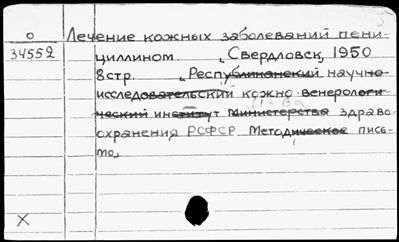 о Лечение кожных заболеваний пени-
34552 циллином. Свердловск, 1950
8стр. Республиканский научно-
исследовательский кожно-венерологи-
ческий институт Министерства здраво-
охранения РСФСР. Методическое пись-
мо.
X